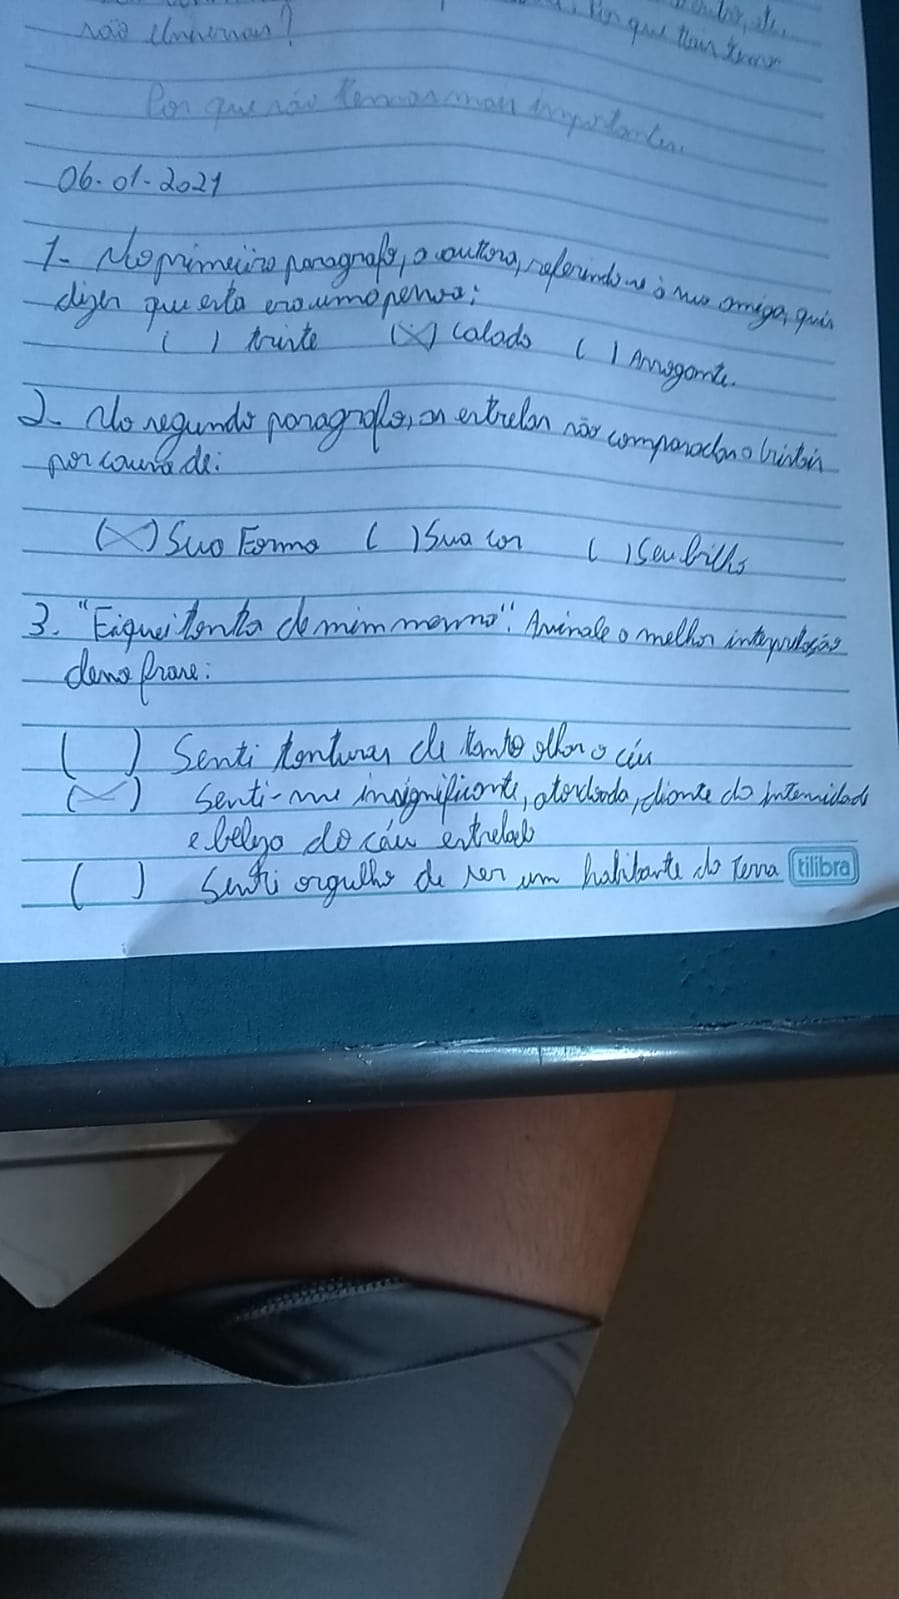 não
Por que tem
Por que não temos mais importantes.
06-01-2021
1- No primeiro paragrafo, a autora, referindo-se à sua amiga, quis
dizer que esta era uma pessoa:
( ) triste (X) Calada ( ) Arrogante.
2- No segundo paragrafo, as estrelas são comparadas a cristais
por causa de:
(X) Sua Forma ( ) Sua cor ( ) Seu brilho
3. "Fiquei tonta de mim mesma". Assinale a melhor interpretação
dessa frase:
( ) Senti tonturas de tanto olhar o céu
(X) Senti-me insignificante, atordoada, diante da intensidade
e beleza do céu estrelado
( ) Senti orgulho de ser um habitante da Terra tilibra